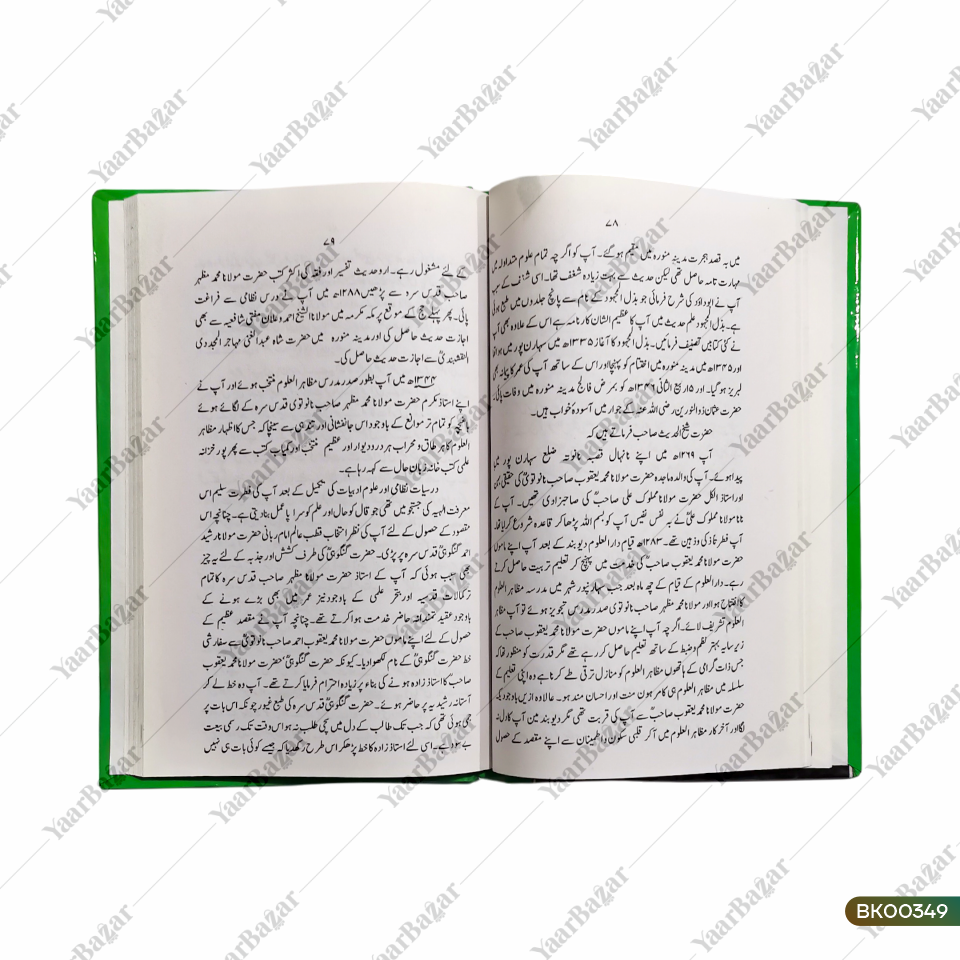 ۷۸
میں بہ قصد ہجرت مدینہ منورہ میں مقیم ہوگئے۔ آپ کو اگرچہ تمام علوم متداولہ میں
مہارت تامہ حاصل تھی لیکن حدیث سے بہت زیادہ شغف تھا۔ اسی شغف کے سبب
آپ نے ابوداؤد کی شرح فرمائی جو بذل المجہود کے نام سے پانچ جلدوں میں طبع ہوئی
ہے۔ بذل المجہود علم حدیث میں آپ کا عظیم الشان کارنامہ ہے اس کے علاوہ بھی آپ
نے کئی کتابیں تصنیف فرمائیں۔ بذل المجہود کا آغاز ۱۳۳۵ھ میں سہارن پور میں ہوا
اور ۱۳۴۵ھ میں مدینہ منورہ میں اختتام کو پہنچا اور اس کے ساتھ آپ کی عمر کا پیمانہ بھی
لبریز ہوگیا۔ اور ۱۵ ربیع الثانی ۱۳۴۶ھ کو بمرض فالج مدینہ منورہ میں وفات پائی۔
حضرت عثمان ذوالنورین رضی اللہ عنہ کے جوار میں آسودۂ خواب ہیں۔
حضرت شیخ الحدیث صاحب فرماتے ہیں کہ
آپ ۱۲۶۹ھ میں اپنے نانہال قصبہ نانوتہ ضلع سہارن پور میں
پیدا ہوئے۔ آپ کی والدہ ماجدہ حضرت مولانا محمد یعقوب صاحب نانوتوی کی حقیقی بہن
اور استاذ الکل حضرت مولانا مملوک علی صاحب کی صاحبزادی تھیں۔ آپ کے
نانا مولانا مملوک علی نے بہ نفس نفیس آپ کو بسم اللہ پڑھا کر قاعدہ شروع کرایا تھا۔
آپ فطرتاً ذکی و ذہین تھے۔ ۱۲۸۳ھ قیام دارالعلوم دیوبند کے بعد آپ اپنے ماموں
حضرت مولانا محمد یعقوب صاحب کی خدمت میں پہنچ کر تعلیم و تربیت حاصل کرتے
رہے۔ دارالعلوم کے قیام کے چھ ماہ بعد جب سہارنپور شہر میں مدرسہ مظاہر العلوم
کا افتتاح ہوا اور مولانا محمد مظہر صاحب نانوتوی صدر مدرس تجویز ہوئے تو آپ مظاہر
العلوم تشریف لائے۔ اگرچہ آپ اپنے ماموں حضرت مولانا محمد یعقوب صاحب کے
زیر سایہ بہتر نظم و ضبط کے ساتھ تعلیم حاصل کر رہے تھے مگر قدرت کو منظور تھا کہ
جس ذات گرامی کے ہاتھوں مظاہر العلوم کو منازل ترقی طے کرنا ہے وہ اپنی تعلیم کے
سلسلہ میں مظاہر العلوم ہی کا مرہون منت اور احسان مند ہو۔ علاوہ ازیں باوجودیکہ
حضرت مولانا محمد یعقوب صاحب سے آپ کی قربت تھی مگر دیوبند میں آپ کا دل نہ
لگا اور آخر کار مظاہر العلوم میں آکر قلبی سکون و اطمینان سے اپنے مقصد کے حصول
۷۹
کے لئے مشغول رہے۔ اور حدیث تفسیر اور فقہ کی اکثر کتب حضرت مولانا محمد مظہر
صاحب قدس سرہ سے پڑھیں ۱۲۸۸ھ میں آپ نے درس نظامی سے فراغت
پائی۔ پھر پہلے حج کے موقع پر مکہ مکرمہ میں مولانا الشیخ احمد دحلان مفتی شافعیہ سے بھی
اجازت حدیث حاصل کی اور مدینہ منورہ میں حضرت شاہ عبدالغنی مہاجر المجددی
النقشبندی سے اجازت حدیث حاصل کی۔
۱۳۴۴ھ میں آپ بطور صدر مدرس مظاہر العلوم منتخب ہوئے اور آپ نے
اپنے استاذ مکرم حضرت مولانا محمد مظہر صاحب نانوتوی قدس سرہ کے لگائے ہوئے
باغیچہ کو تمام تر موانع کے باوجود اس جانفشانی اور تندہی سے سینچا کہ جس کا اظہار مظاہر
العلوم کا ہر طاق و محراب ہر در و دیوار اور عظیم منتخب اور کمیاب کتب سے بھرپور خزانہ
علمی کتب خانہ زبان حال سے کہہ رہا ہے۔
درسیات نظامی اور علوم ادبیات کی تکمیل کے بعد آپ کی فطرت سلیم اس
معرفت الٰہیہ کی جستجو میں تھی جو قال کو حال اور علم کو سراپا عمل بنا دیتی ہے۔ چنانچہ اس
مقصود کے حصول کے لئے آپ کی نظر انتخاب قطب عالم امام ربانی حضرت مولانا رشید
احمد گنگوہی قدس سرہ پر پڑی۔ حضرت گنگوہی کی طرف کشش اور جذبہ کے لئے یہ چیز
بھی سبب ہوئی کہ آپ کے استاذ حضرت مولانا مظہر صاحب قدس سرہ کا تمام
تر کمالات قدسیہ اور تبحر علمی کے باوجود نیز عمر میں بھی بڑے ہونے کے
باوجود عقیدتمندانہ حاضر خدمت ہوا کرتے تھے۔ چنانچہ آپ نے مقصد عظیم کے
حصول کے لئے اپنے ماموں حضرت مولانا محمد یعقوب احمد صاحب نانوتوی سے سفارشی
خط حضرت گنگوہی کے نام لکھوا دیا۔ کیونکہ حضرت گنگوہی حضرت مولانا محمد یعقوب
صاحب کا استاذ زادہ ہونے کی بناء پر زیادہ احترام فرمایا کرتے تھے۔ آپ وہ خط لے کر
آستانہ رشیدیہ پر حاضر ہوئے۔ حضرت گنگوہی قدس سرہ کی طبع غیور چونکہ اس بات پر
جمی ہوئی تھی کہ جب تک طالب کے دل میں سچی طلب نہ ہو اس وقت تک رسمی بیعت
بے سود ہے۔ اسی لئے استاذ زادہ کا خط پڑھ کر اس طرح رکھ دیا کہ جیسے کوئی بات ہی نہیں
YaarBazar
BK00349